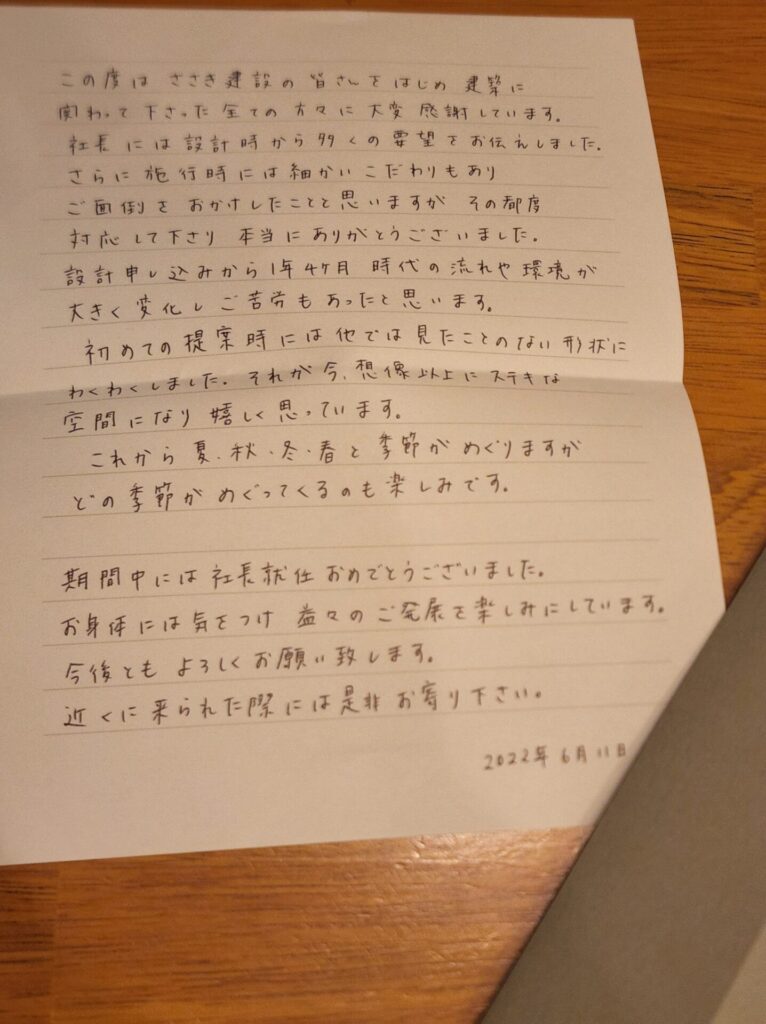 この度は ささき建設の 皆さんをはじめ 建築に
関わって下さった全ての方々に大変 感謝しています。
社長には設計時から多くの要望をお伝えしました。
さらに施行時には細かいこだわりもあり
ご面倒を おかけしたことと思いますが その都度
対応して下さり 本当にありがとうございました。
設計申し込みから1年4ヶ月 時代の流れや環境が
大きく変化しご苦労もあったと思います。
初めての提案時には他では見たことのない形状に
わくわくしました。それが今、想像以上にステキな
空間になり嬉しく思っています。
これから夏・秋・冬・春と季節がめぐりますが
どの季節がめぐってくるのも楽しみです。
期間中には社長就任おめでとうございました。
お身体には気をつけ 益々のご発展を楽しみにしています。
今後ともよろしくお願い致します。
近くに来られた際には是非お寄り下さい。
2022年6月11日